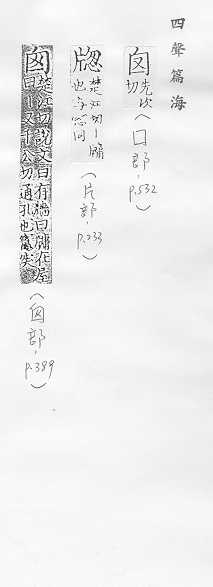 四聲篇海
囪 先次切(口部,p.532)
牎 楚江切丨牖也与窓同(片部,p.233)
囪 楚江切說文曰在牆曰牖在屋曰丨又千公切通孔也竈突(囪部,p.389)